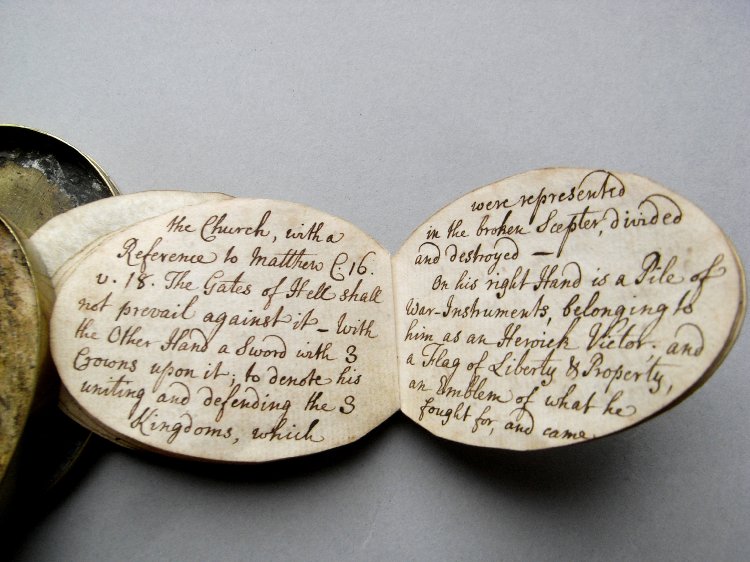 the Church, with a
Reference to Matthew C. 16.
v. 18. The Gates of Hell shall
not prevail against it — With
the Other Hand a Sword with 3
Crowns upon it; to denote his
uniting and defending the 3
Kingdoms, which
were represented
in the broken Scepter, divided
and destroyed —
On his right Hand is a Pile of
War-Instruments, belonging to
him as an Heroick Victor. and
a Flag of Liberty & Property,
an Emblem of what he
fought for, and came